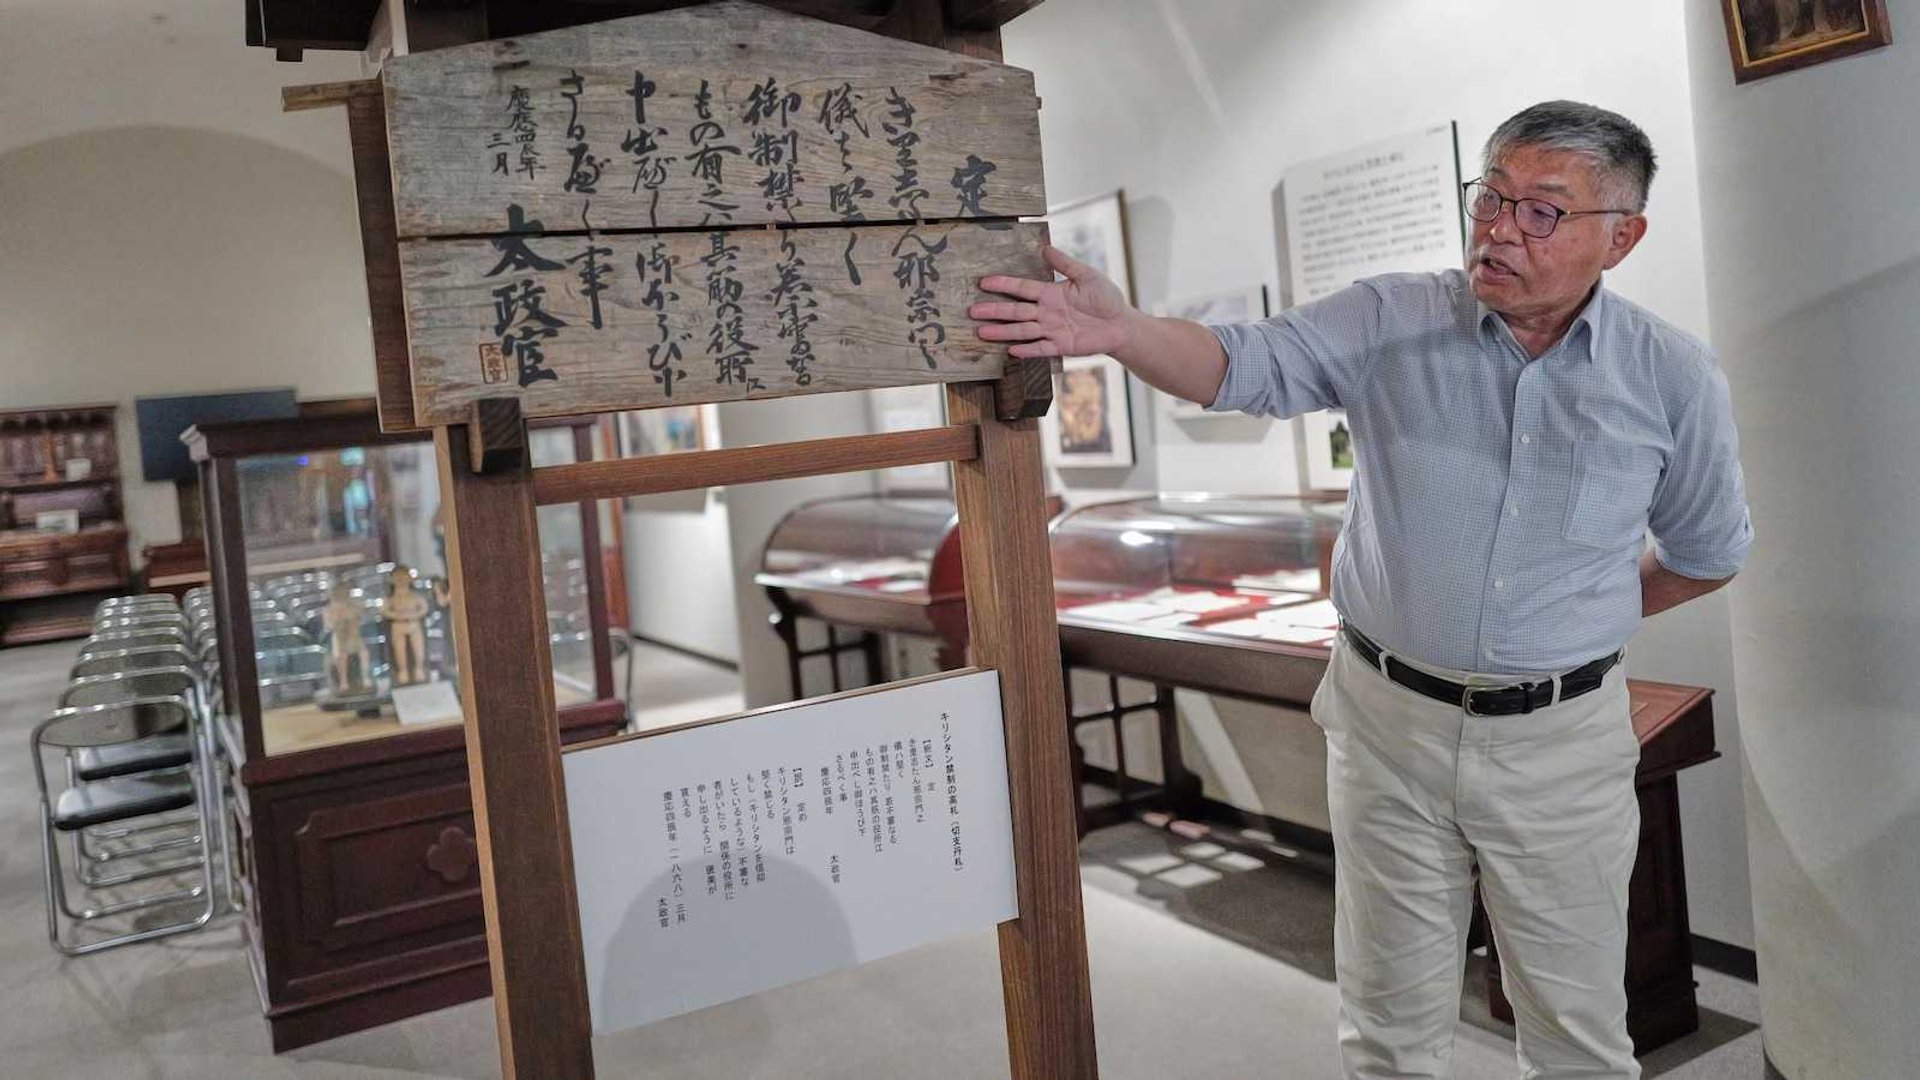 定
きりしたん邪宗門之
儀ハ堅く
御制禁たり若不審なる
もの有之ハ其筋の役所江
申出へし御ほうび下
さるべく事
慶應四辰年
三月
太政官
太政官
キリシタン禁制の高札(切支丹札)
【釈文】 定
き里志たん邪宗門之
儀ハ堅く
御制禁たり 若不審なる
もの有之ハ其筋の役所江
申出へし御ほうび下
さるべく事
慶応四辰年
太政官
【訳】 定め
キリシタン邪宗門は
堅く禁じる
もし(キリシタンを信仰
しているような)不審な
者がいたら 関係の役所に
申し出るように 褒美が
貰える
慶応四辰年(一八六八)三月
太政官